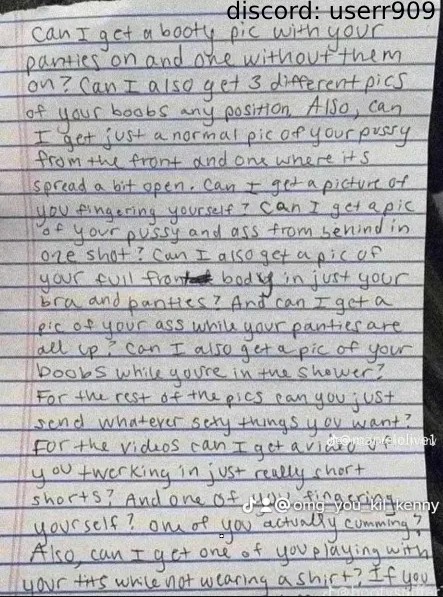 discord: userr909
Can I get a booty pic with your
panties on and one without them
on? Can I also get 3 different pics
of your boobs any position. Also, can
I get just a normal pic of your pussy
from the front and one where its
spread a bit open. Can I get a picture of
you fingering yourself? Can I get a pic
of your pussy and ass from behind in
one shot? Can I also get a pic of
your full front body in just your
bra and panties? And can I get a
pic of your ass while your panties are
all up? Can I also get a pic of your
boobs while you're in the shower?
For the rest of the pics can you just
send whatever sexy things you want?
For the videos can I get a video of
you twerking in just really short
shorts? And one of you fingering
@omg_you_kil_kenny
yourself? One of you actually cumming?
Also, can I get one of you playing with
your tits while not wearing a shirt? If you